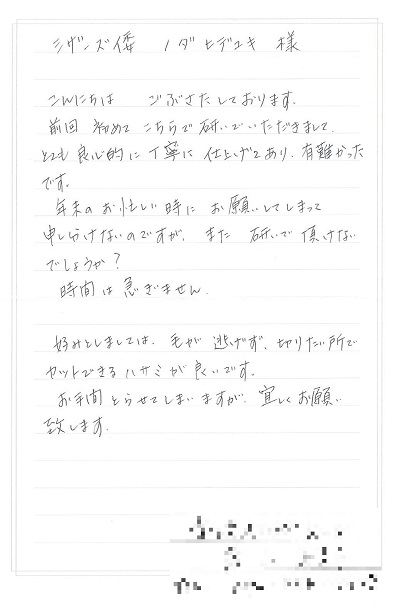 シザーズ倭 ノダヒデユキ 様
こんにちは ごぶさたしております。
前回 初めて こちらで 研いでいただきまして、
とても 良心的に 丁寧に 仕上げてあり、有難かった
です。
年末の お忙しい時に お願いしてしまって
申し分けないのですが、また 研いで 頂けない
でしょうか?
時間は 急ぎません。
好みとしましては、毛が 逃げず、切りたい所で
カットできる ハサミが 良いです。
お手間 とらせてしまいますが、宜しくお願い
致します。